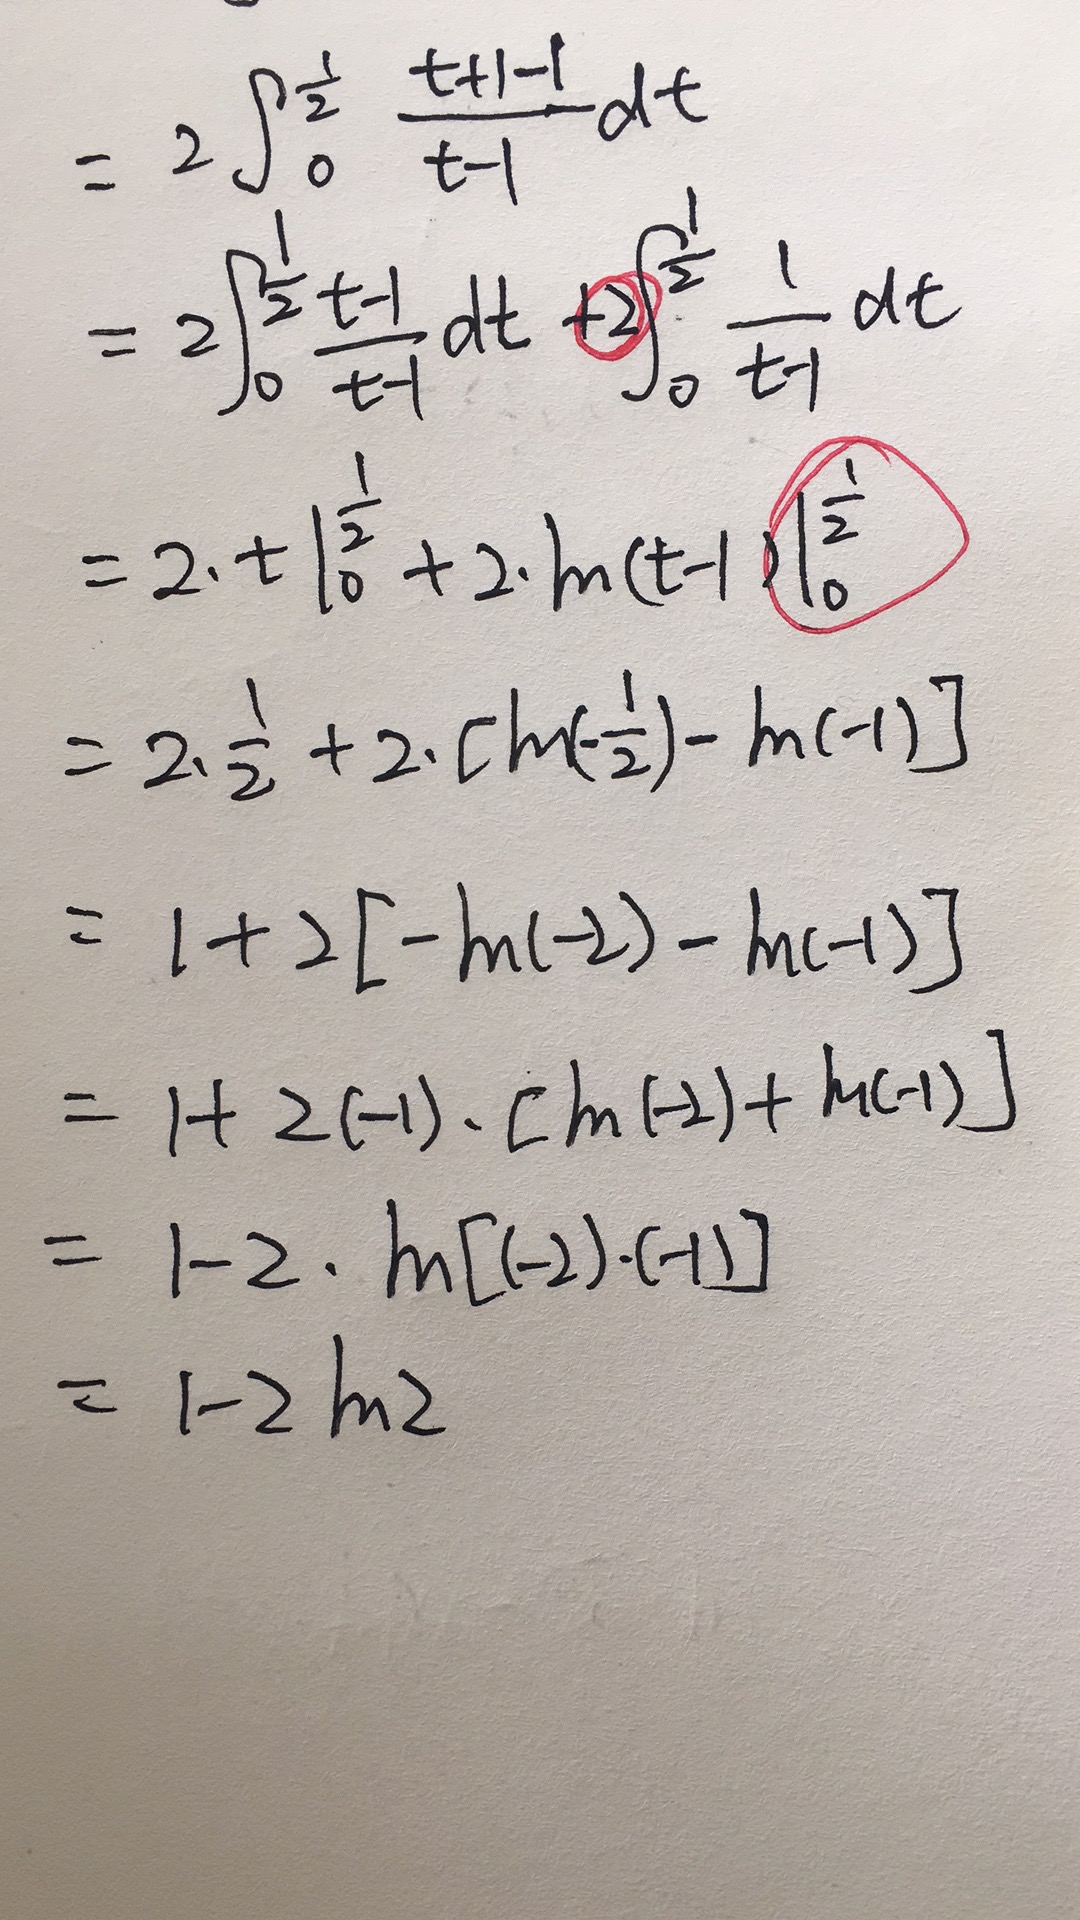 = 2∫₀^{1/2} (t+1-1)/(t-1) dt
= 2∫₀^{1/2} (t-1)/(t-1) dt +2∫₀^{1/2} 1/(t-1) dt
= 2·t|₀^{1/2} + 2·ln(t-1)|₀^{1/2}
= 2·1/2 + 2·[ln(-1/2) - ln(-1)]
= 1+2[-ln(-2) - ln(-1)]
= 1+2(-1)·[ln(-2)+ln(-1)]
= 1-2·ln[(-2)·(-1)]
= 1-2ln2